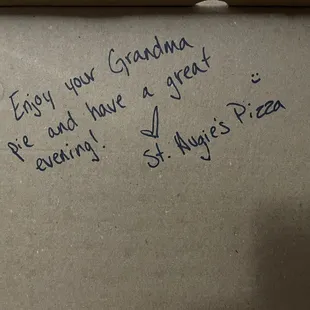 Enjoy your Grandma
pie and have a great
evening!
St. Augie's Pizza